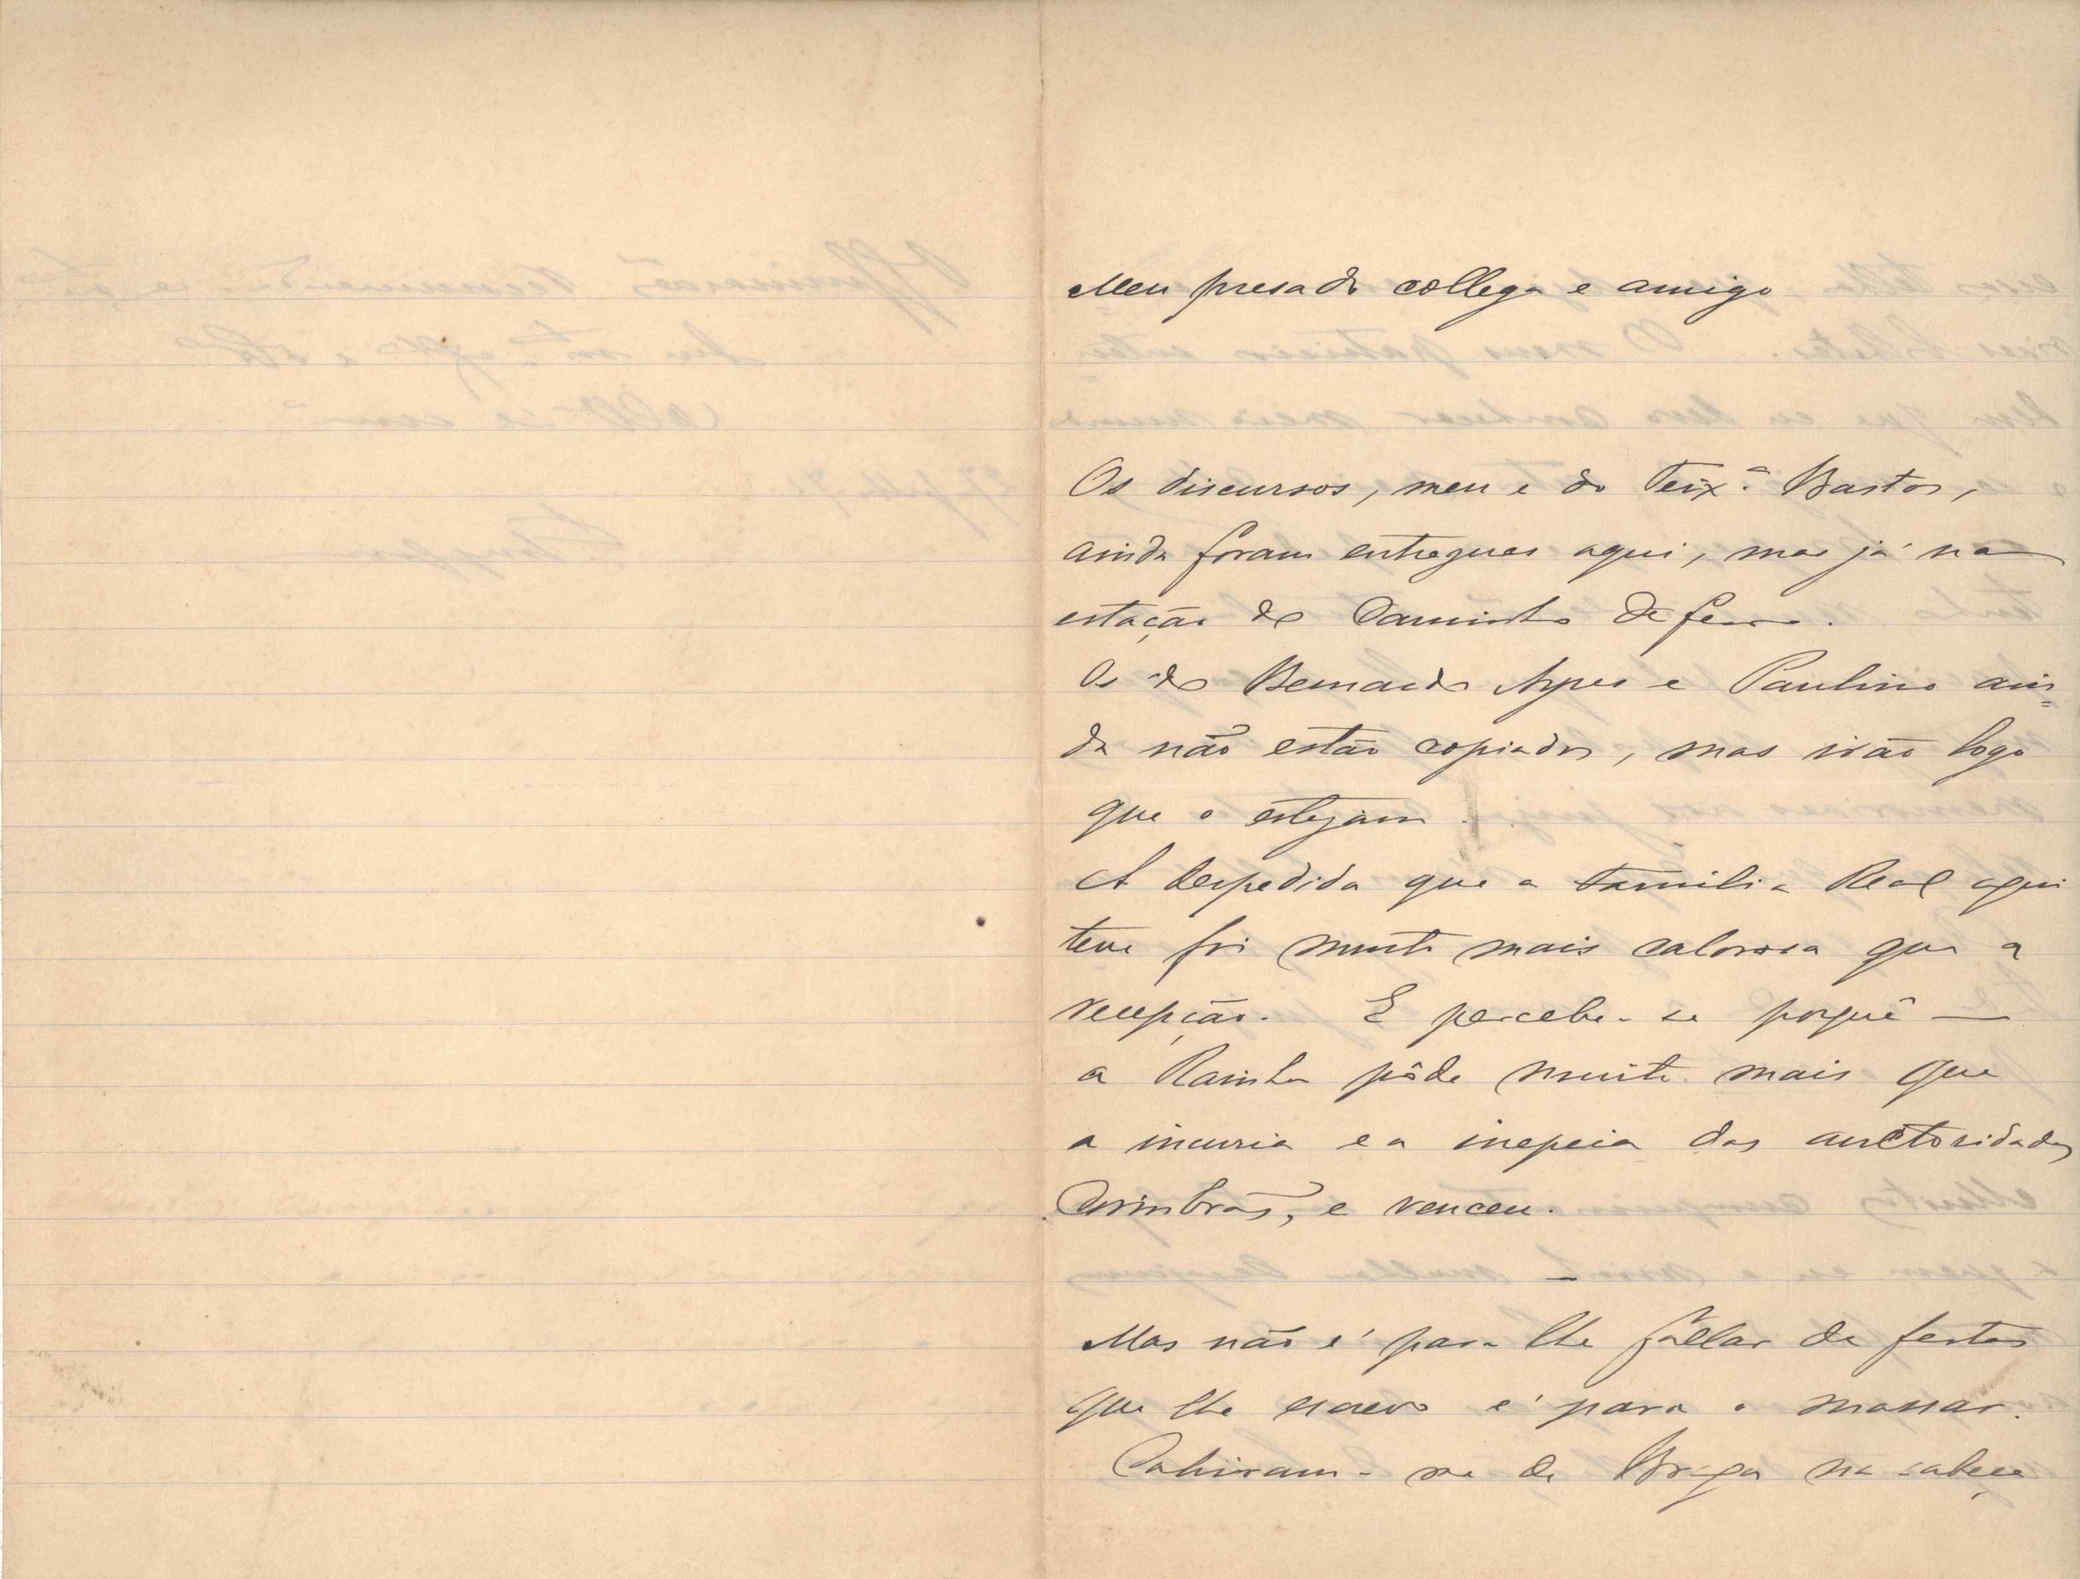 Meu presado collega e amigo
Os discursos, meu e do Teix.ª Bastos,
ainda foram entregues aqui, mas já na
estação do Caminho de ferro.
Os do Bernardo Ayres e Paulino ain=
da não estão copiados, mas irão logo
que o estejam.
A despedida que a familia Real aqui
teve foi muito mais calorosa que a
recepção. E percebe-se porquê —
a Rainha pôde muito mais que
a incuria e a inepcia das auctoridades
Coimbrãs, e venceu.
Mas não é para lhe fallar de festas
que lhe escrevo é para o massar.
Cahiram-me de Braga na cabeça